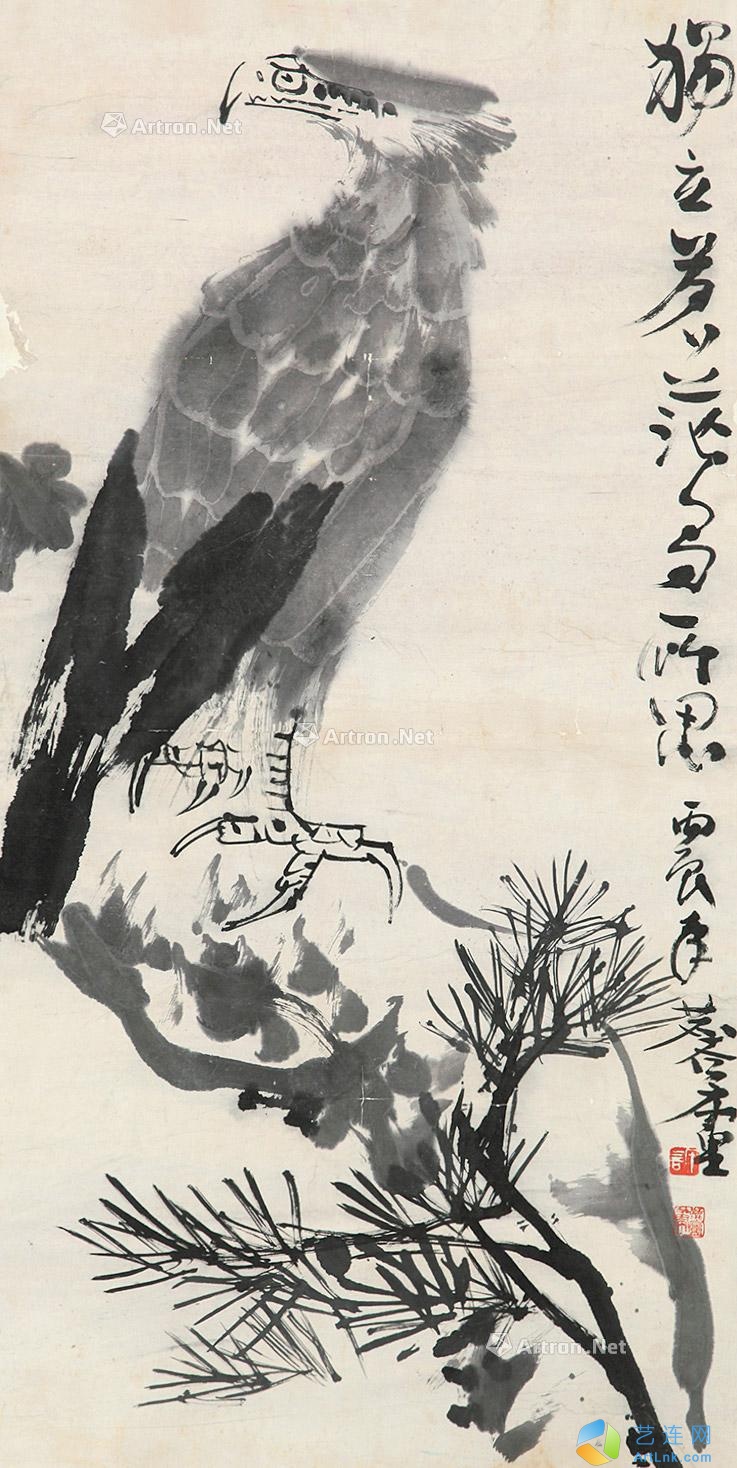 獨立蒼茫有所思 丙辰年
Artron.Net
Artron.Net
Artron.Net
艺连网
ArtLnk.com